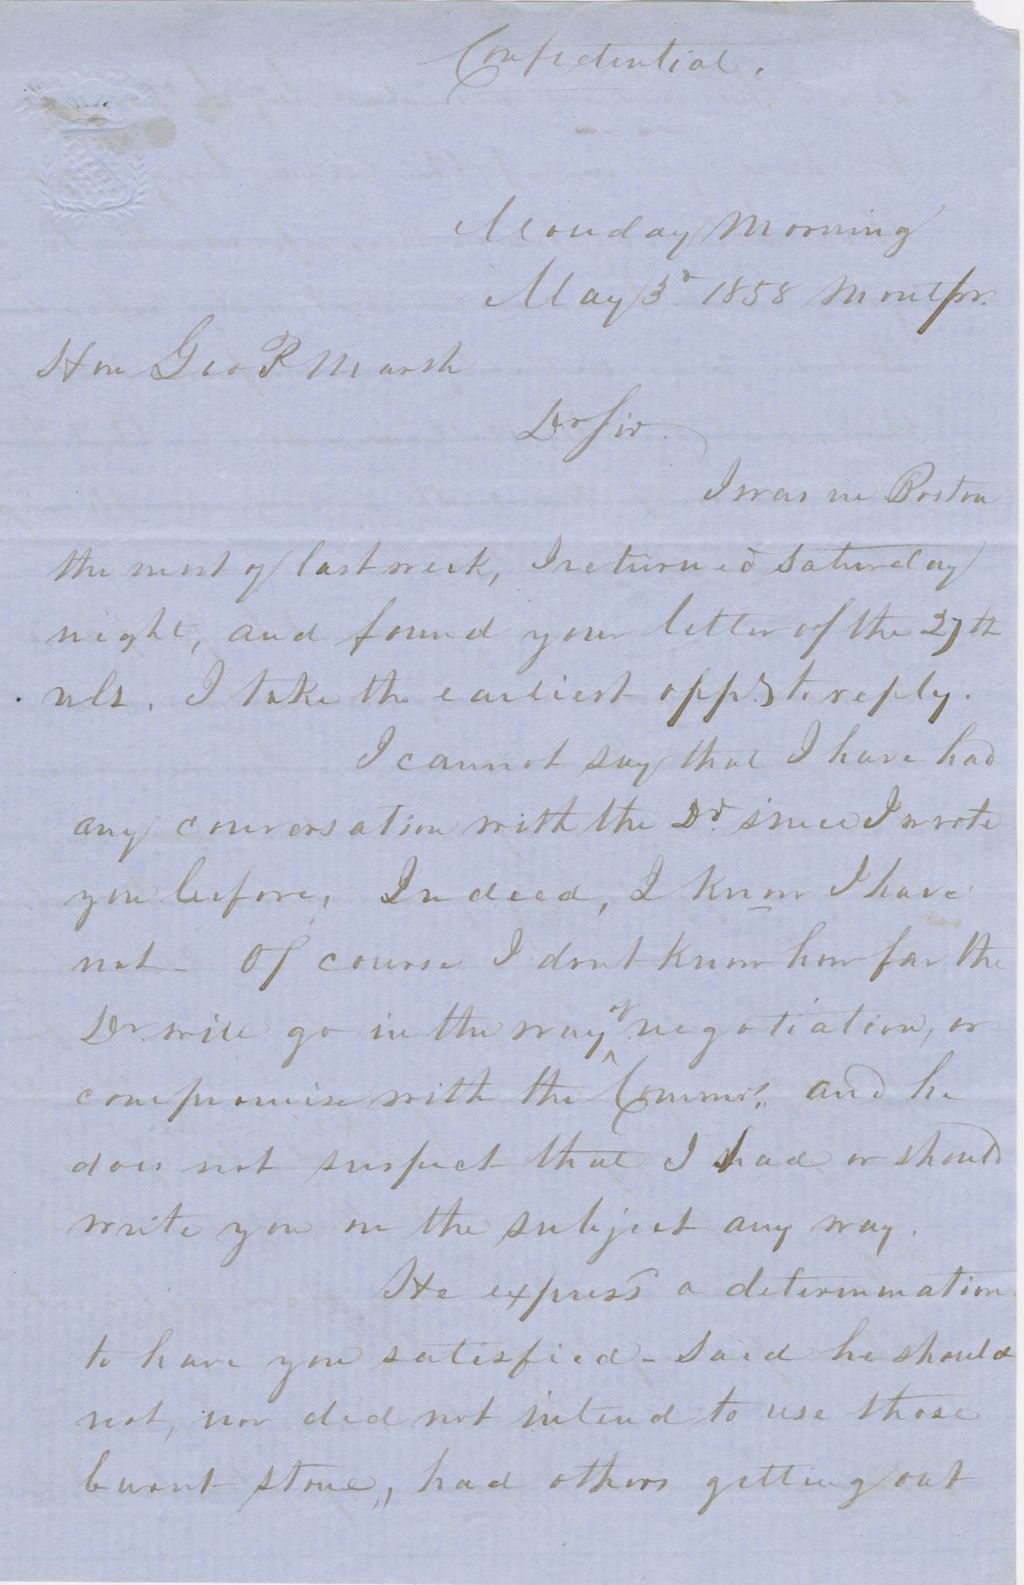 Confidential.
Monday Morning
May 3d 1858 Montpr.
Hon Geo P Marsh
Dr Sir.
I was in Boston
the most of last week, I returned Saturday
night, and found your letter of the 27th
ult. I take the earliest oppy to reply.
I cannot say that I have had
any conversation with the Dr. since I wrote
you before, Indeed, I know I have
not - Of course I dont know how far the
Dr. will go in the way of negotiation, or
compromise with the Commrs. and he
does not suspect that I had or should
write you on the subject any way.
He express'd a determination
to have you satisfied - Said he should
not, nor did not intend to use those
burnt stone, had others getting out